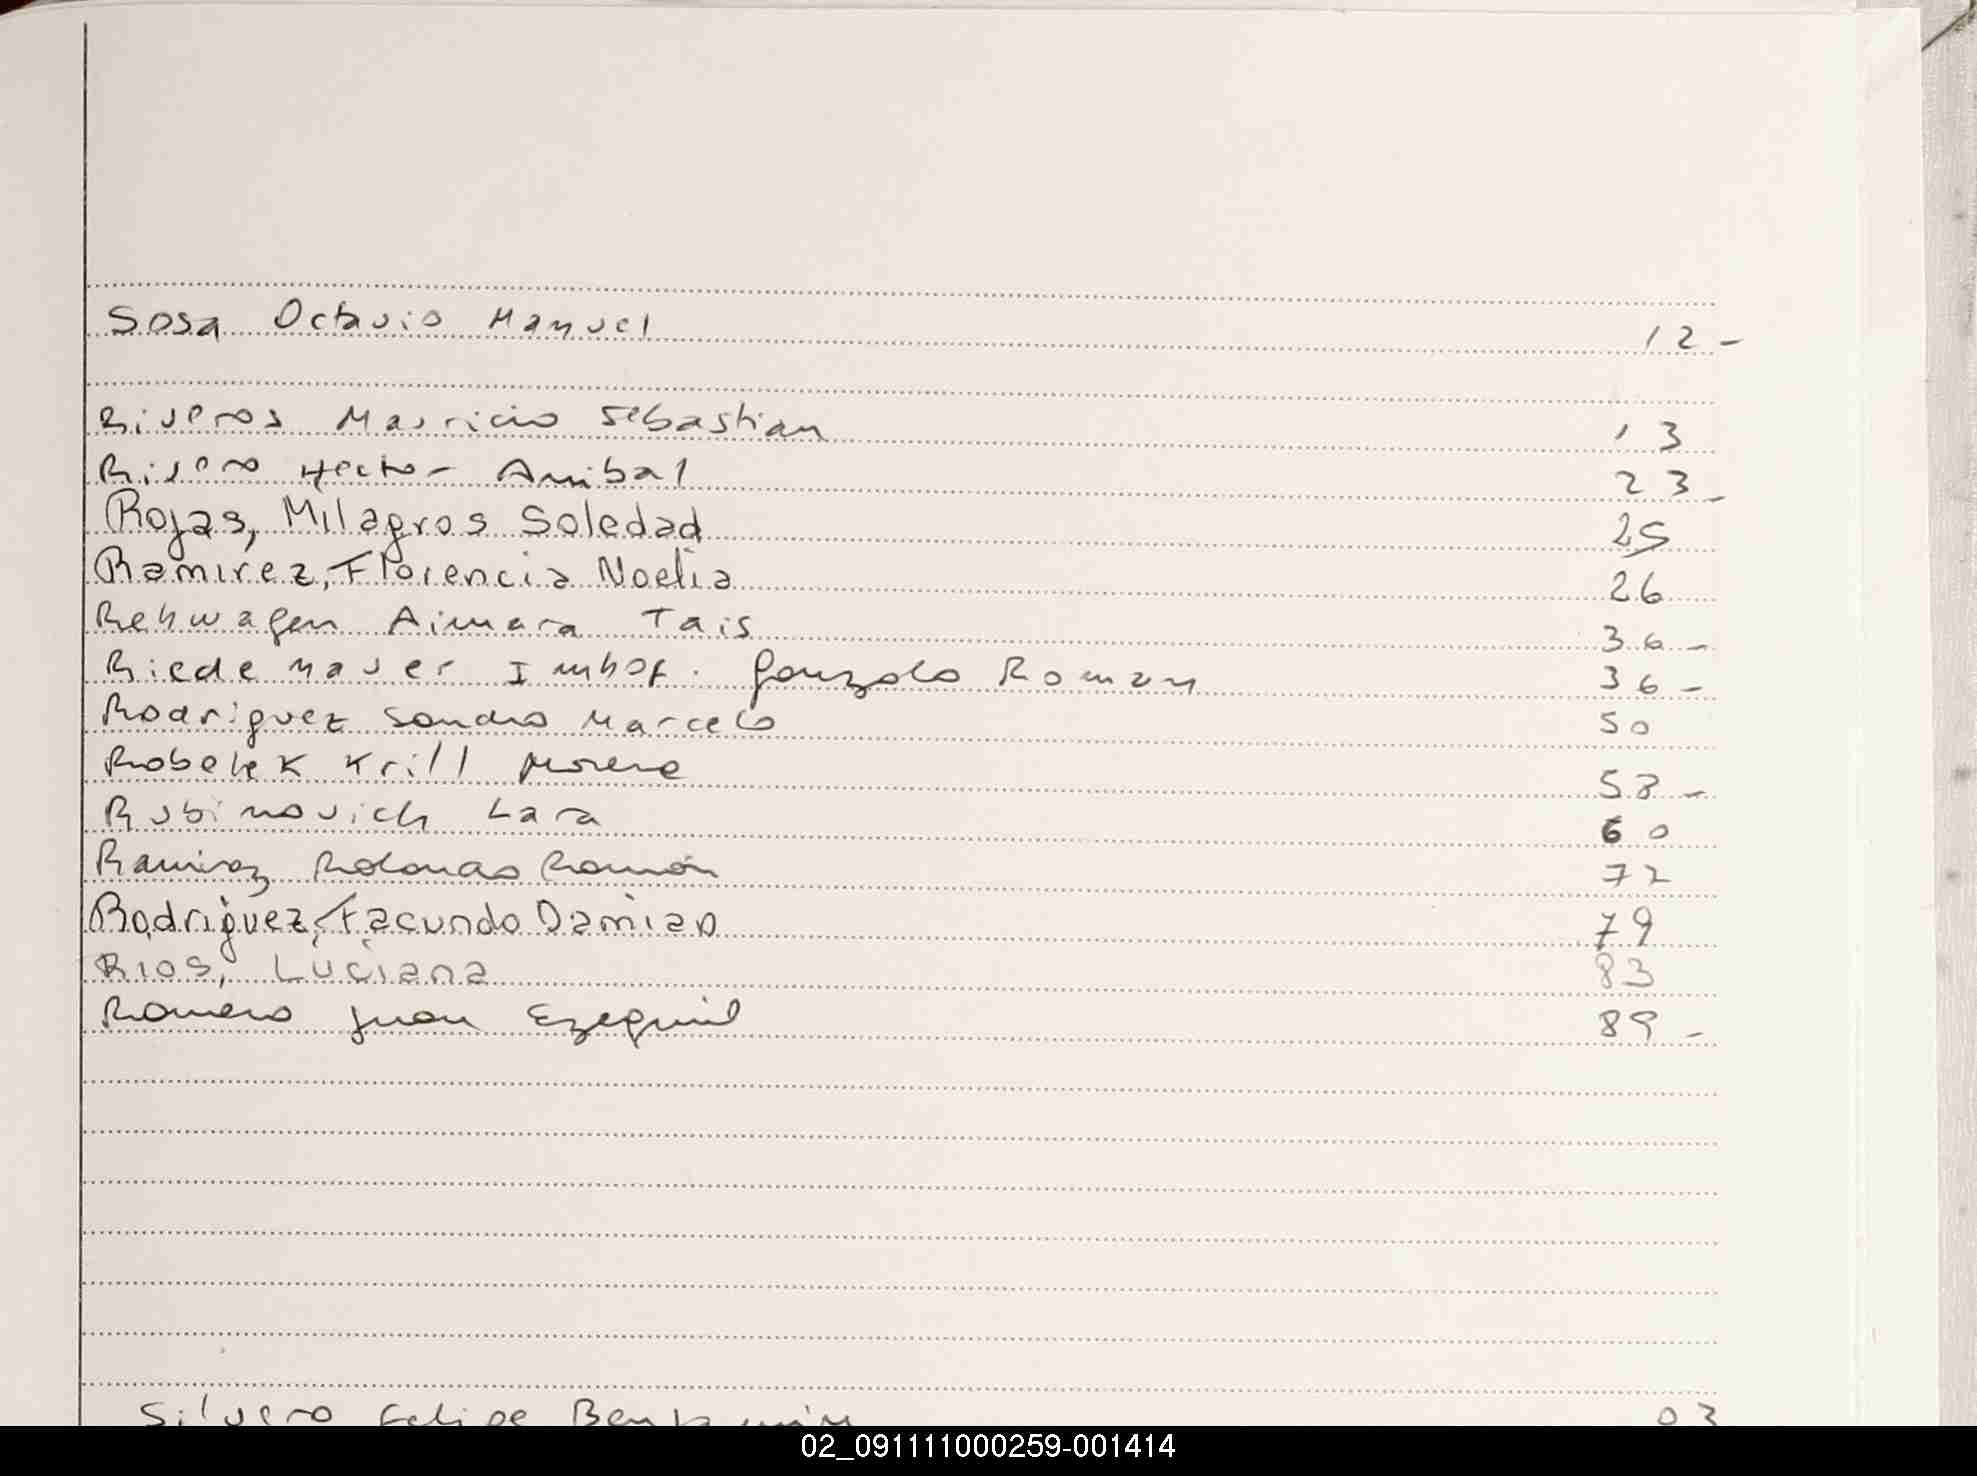 Sosa Octavio Manuel 12 -
Riveros Mauricio Sebastian 13
Rivero Hector Anibal 23 -
Rojas, Milagros Soledad 25
Ramirez, Florencia Noelia 26
Rehwagen Aimara Tais 36 -
Riede mauer Imhof. Gonzalo Roman 36 -
Rodriguez Sandro Marcelo 50
Krill Morena 58 -
Rubinovich Lara 60
Ramirez Ramón 72
Rodriguez, Facundo Damian 79
Rios, Luciana 83
Romero Juan Ezequiel 89 -
Silvero Felipe Benjamin 03
02_091111000259-001414